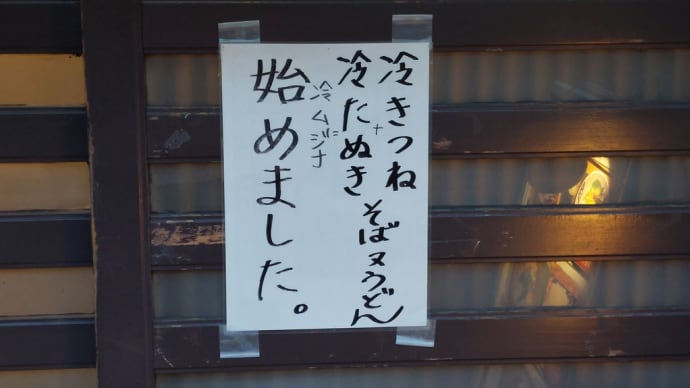 冷きつね
+
冷たぬき
そば又うどん
=
冷ムジナ
始めました。